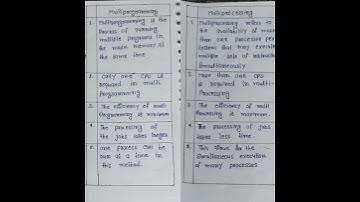 Multiprogramming
1. Multiprogramming is the
process of running
multiple programs in
the main memory at
the same time
2. Only one CPU is
required in multi
programming
3. The efficiency of multi
programming is minimum
4. The processing of
the jobs takes longer
5. One process can be
run at a time in
this method.
Multiprocessing
1. Multiprocessing refers to
the availability of more
than one processor per
system that may execute
multiple sets of
simultaneously
2. More than one CPU
is required in multi-
processing
3. The efficiency of multi
processing is maximum.
4. The processing of jobs
takes less time.
5. This allows for the
simultaneous execution
of many processes.